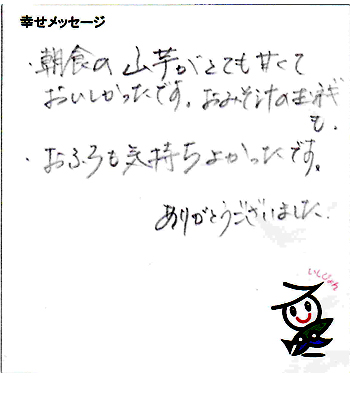 幸せメッセージ
・朝食の山芋がとても甘くて
おいしかったです。おみそ汁の玉ネギ
も。
・おふろも気持ちよかったです。
ありがとうございました。